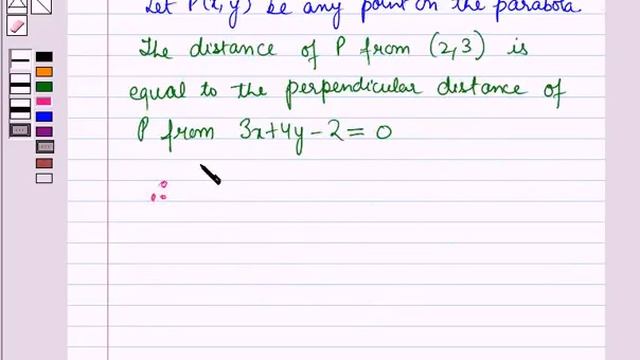 Let P(x,y) be any point on the parabola
The distance of P from (2,3) is
equal to the perpendicular distance of
P from 3x+4y-2=0
∴